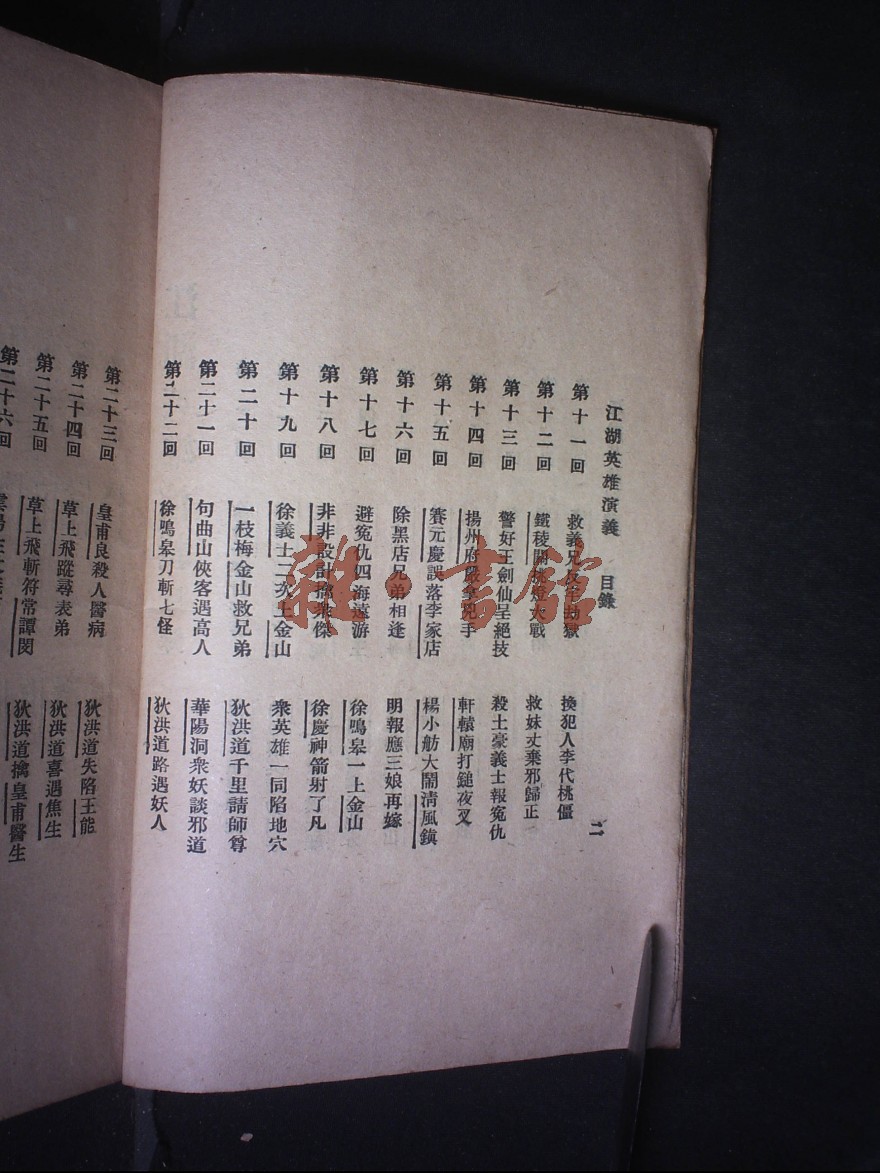 江湖英雄演義 目錄 二
第十一回 救義兄反牢劫獄 換犯人李代桃僵
第十二回 鐵稜關挑燈大戰 救妹丈棄邪歸正
第十三回 警好王劍仙呈絕技 殺土豪義士報冤仇
第十四回 揚州府嚴拿兇手 軒轅廟打鎚夜叉
第十五回 賽元慶誤落李家店 楊小舫大鬧清風鎮
第十六回 除黑店兄弟相逢 明報應三娘再嫁
第十七回 避冤仇四海遠游 徐鳴皋一上金山
第十八回 非非設計擒衆傑 徐慶神箭射了凡
第十九回 徐義士二次上金山 衆英雄一同陷地穴
第二十回 一枝梅金山救兄弟 狄洪道千里請師尊
第二十一回 句曲山俠客遇高人 華陽洞衆妖談邪道
第二十二回 徐鳴皋刀斬七怪 狄洪道路遇妖人
第二十三回 皇甫良殺人醫病 狄洪道失陷王能
第二十四回 草上飛蹤尋表弟 狄洪道喜遇焦生
第二十五回 草上飛斬符常譚閔 狄洪道擒皇甫醫生
第二十六回
雜·書館